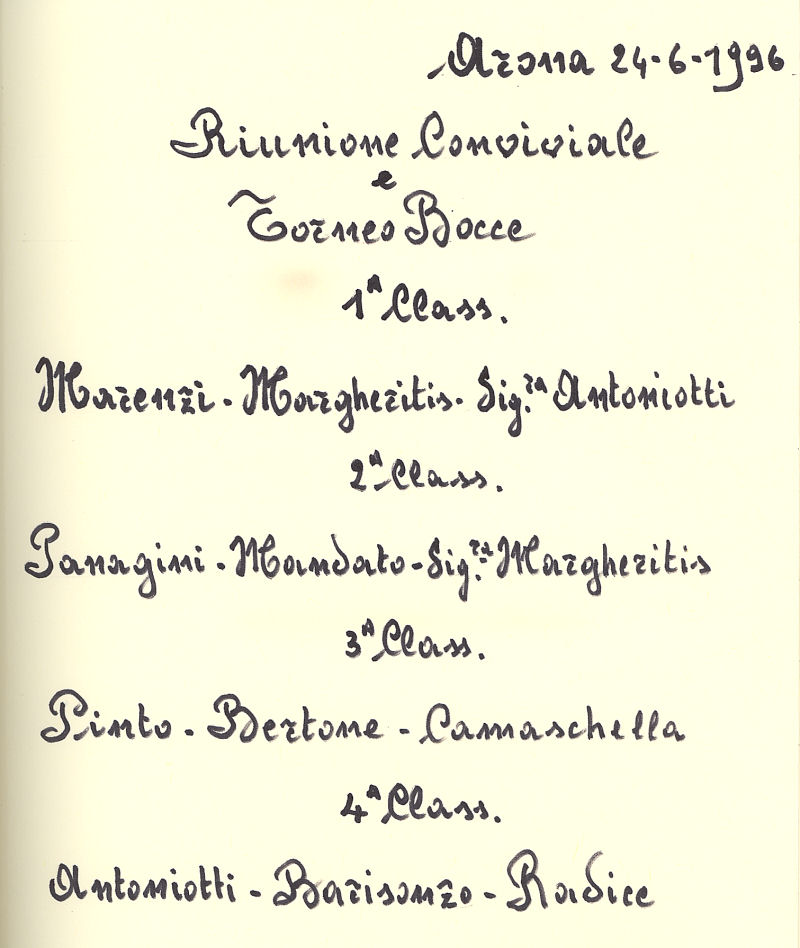 Arona 24-6-1996
Riunione Conviviale
e
Torneo Bocce
1ᴬ Class.
Marenzi - Margheritis - Sig.ra Antoniotti
2ᴬ Class.
Panagini - Mandato - Sig.ra Margheritis
3ᴬ Class.
Pinto - Bertone - Camaschella
4ᴬ Class.
Antoniotti - Barisonzo - Radice